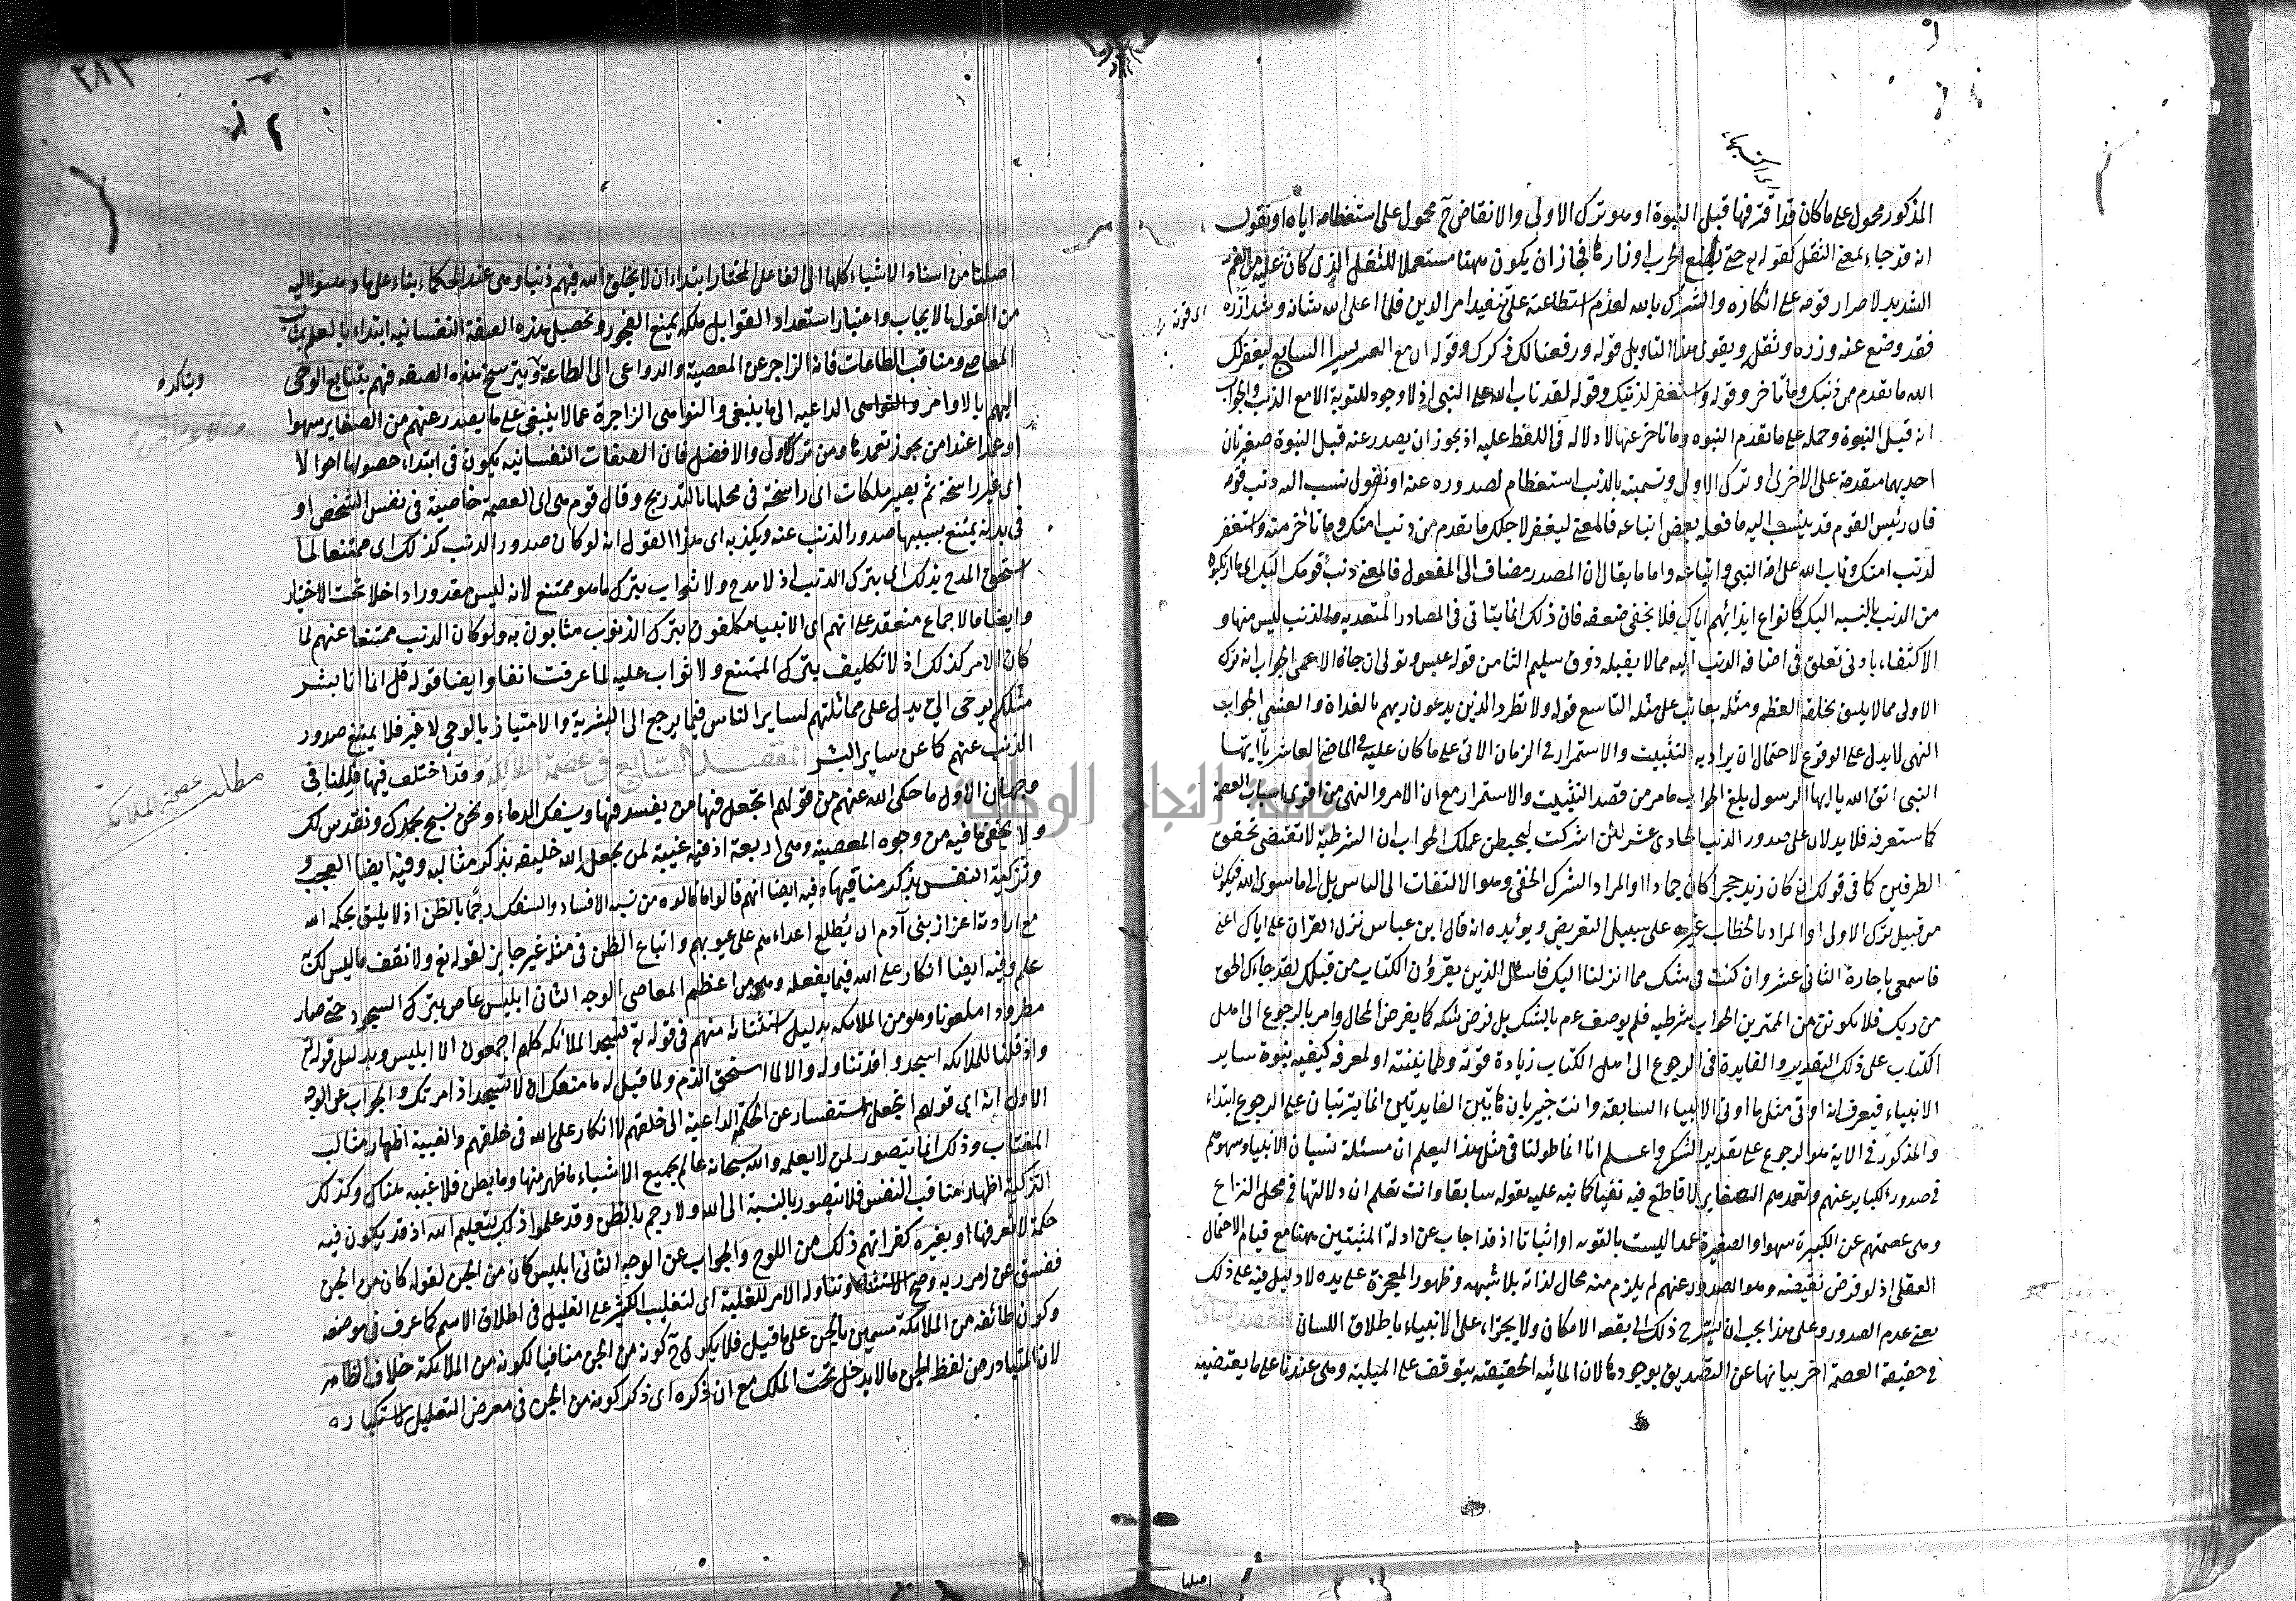 المذكور محمول على ما كان قد اقترفها قبل النبوة او هو ترك الاولى والانقاض ح محمول على استعظامه اياه او نقول
انه قد جاء بمعنى الثقل كقوله تع حتى تضع الحرب اوزارها فجاز ان يكون ههنا مستعملا للثقل الذى كان عليه من الغم
الشديد لاصرار قومه على انكاره والشرك بالله لعدم استطاعته على تنفيذ امر الدين فلما اعلى الله شانه وشد ازره
اى قوته
فقد وضع عنه وزره وثقله ويقوى هذا التاويل قوله ورفعنا لك ذكرك وقوله ان مع العسر يسرا السابع ليغفر لك
الله ما تقدم من ذنبك وما تاخر وقوله واستغفر لذنبك وقوله لقد تاب الله على النبى اذ لا وجود للتوبة الا مع الذنب والجواب
انه قبل النبوة وحمله على ما تقدم النبوه وما تاخر عنها لا دلالة فى اللفظ عليه اذ يجوز ان يصدر عنه قبل النبوة صغيرتان
احديهما متقدمة على الاخرى او ترك الاولى وتسميته بالذنب استعظام لصدوره عنه او نقول نسب اليه ذنب قومه
فان رئيس القوم قد ينسب اليه ما فعله بعض اتباعه فالمعنى ليغفر لاجلك ما تقدم من ذنب امتك وما تاخر منه واستغفر
لذنب امتك وتاب الله على امة النبي واتباعه واما ما يقال ان المصدر مضاف الى المفعول فالمعنى ذنب قومك اليك اى ما ارتكبوه
من الذنب بالنسبه اليك كانواع ايذائهم اياك فلا يخفى ضعفه فان ذلك انما يتاتى فى المصادر المتعديه والذنب ليس منها و
الاكتفاء بادنى تعلق فى اضافة الذنب اليه مما لا يقبله ذوق سليم الثامن قوله عبس وتولى ان جاه الاعمى الجواب انه ترك
الاولى مما لا يليق بخلقه العظيم ومثله يعاتب على مثله التاسع قوله ولا تطرد الذين يدعون ربهم بالغداة والعشى الجواب
النهى لا يدل على الوقوع لاحتمال ان يراد به التثبيت والاستمرار فى الزمان الاتى على ما كان عليه فى الماضى العاشر يا ايها
النبى اتق الله يا ايها الرسول بلغ الجواب ما مر من قصد التثبيت والاستمرار مع ان الامر والنهى من اقوى اسباب العصمة
كما ستعرفه فلا يدلان على صدور الذنب الحادى عشر لئن اشركت ليحبطن عملك الجواب ان الشرطية لا تقتضى تحقق
الطرفين كما فى قولك ان كان زيد حجرا كان جمادا او المراد الشرك الخفى وهو الالتفات الى الناس بل الى ما سوى الله فيكون
من قبيل ترك الاولى او المراد بالخطاب غيره على سبيل التعريض ويؤيده انه قال ابن عباس نزل القران على اياك اعنى
فاسمعى يا جارة الثانى عشر وان كنت فى شك مما انزلنا اليك فاسئل الذين يقرؤن الكتاب من قبلك لقد جاءك الحق
من ربك فلا تكونن من الممترين الجواب شرطيه فلم يوصف عم بالشك بل فرض شكه كما يفرض المحال وامر بالرجوع الى اهل
الكتاب على ذلك التقدير والفايدة فى الرجوع الى اهل الكتاب زيادة قوته وطمانينته او لمعرفه كيفيه نبوة ساير
الانبياء فيعرف انه اوتى مثل ما اوتى الانبياء السابقه وانت خبير بان هاتين الفايدتين انما يترتبان على الرجوع ابتداء
والمذكور فى الاية هو الرجوع على تقدير الشك واعلم انا انما طولنا فى مثل هذا ليعلم ان مسئلة نسيان الانبياء وسهوهم
فى صدور الكباير عنهم وتعمدهم الصغاير لا قاطع فيه نفيا كما نبه عليه بقوله سابقا وانت تعلم ان دلالتها فى محل النزاع
وهى عصمتهم عن الكبيرة سهوا والصغيرة عمدا ليست بالقويه او اثباتا اذ قد اجاب عن ادلة المثبتين ههنا مع قيام الاحتمال
العقلى اذ لو فرض نقيضه وهو الصدور عنهم لم يلزم منه محال لذاته بلا شبهه وظهور المعجزة على يده لا دليل فيه على ذلك
يعنى عدم الصدور وعلى هذا يجب ان يسرح ذلك الى بقعه الامكان ولا يجترا على الانبياء باطلاق اللسان
فى حقيقة العصمة اخر بيانها عن التصديق بوجودها لان المائيه الحقيقيه يتوقف على الهلية وهى عندنا على ما يقتضيه
اصلنا
٢٨٣
اصلنا من اسناد الاشياء كلها الى الفاعل المختار ابتداء ان لا يخلق الله فيهم ذنبا وهى عند الحكماء بناء على ما ذهبوا اليه
من القول بالايجاب واعتبار استعداد القوابل ملكة يمنع الفجور وتحصيل هذه الصفة النفسانيه ابتداء بالعلم بمثالب
المعاصى ومناقب الطاعات فانه الزاجر عن المعصية والداعى الى الطاعة ويترسخ هذه الصفه فيهم بتتابع الوحى
ويتاكد
اليهم بالاوامر والنواهى الداعيه الى ما ينبغى والنواهى الزاجرة عما لا ينبغى على ما يصدر عنهم من الصغاير سهوا
والاعتراض
او عمدا عند من يجوز تعمدها ومن ترك الاولى والافضل فان الصفات النفسانيه يكون فى ابتداء حصولها احوالا
اى غير راسخة ثم يصير ملكات اى راسخة فى محلها بالتدريج وقال قوم هى اى العصمة خاصية فى نفس الشخص او
فى بدنه يمتنع بسببها صدور الذنب عنه ويكذبه اى هذا القول انه لو كان صدور الذنب كذلك اى ممتنعا لما
استحق المدح بذلك اى بترك الذنب اذ لا مدح ولا ثواب بترك ما هو ممتنع لانه ليس مقدورا داخلا تحت الاختيار
وايضا فالاجماع منعقد على انهم اى الانبياء مكلفون بترك الذنوب مثابون به ولو كان الذنب ممتنعا عنهم لما
كان الامر كذلك اذ لا تكليف بترك الممتنع ولا ثواب عليه لما عرفت انفا وايضا قوله قل انما انا بشر
مثلكم يوحى الى يدل على مماثلتهم لساير الناس فيما يرجع الى البشرية والامتياز بالوحى لا غير فلا يمتنع صدور
الذنب عنهم كما عن ساير البشر المقصد السابع فى عصمة الملائكة وقد اختلف فيها فللنافى
مطلب عصمة الملائكة
وجهان الاول ما حكى الله عنهم من قولهم اتجعل فيها من يفسد فيها ويسفك الدماء ونحن نسبح بحمدك ونقدس لك
ولا يخفى ما فيه من وجوه المعصية وهى اربعة اذ فيه غيبة لمن يجعل الله خليفة بذكر مثالبه وفيه ايضا العجب و
وتزكية النفس بذكر مناقبها وفيه ايضا انهم قالوا ما قالوه من نسبة الافساد والسفك رجما بالظن اذ لا يليق بحكمه الله
مع ارادته اعزاز بنى آدم ان يطلع اعداءهم على عيوبهم واتباع الظن فى مثله غير جايز لقوله تع ولا تقف ما ليس لك به
علم وفيه ايضا انكار على الله فيما يفعله وهو من اعظم المعاصى الوجه الثانى ابليس عاص بترك السجود حتى صار
مطرودا ملعونا وهو من الملائكه بدليل استثنائه منهم فى قوله تع فسجد الملائكه كلهم اجمعون الا ابليس وبدليل قوله تع
واذ قلنا للملائكه اسجدوا قد تناوله والا لما استحق الذم ولما قيل له ما منعك ان لا تسجد اذ امرتك والجواب عن الوجه
الاول انه اى قولهم اتجعل استفسار عن الحكمة الداعية الى خلقهم لا انكار على الله فى خلقهم والغيبة اظهار مثالب
المغتاب وذلك انما يتصور لمن لا يعلمه والله سبحانه عالم بجميع الاشياء ما ظهر منها وما بطن فلا غيبه هناك وكذلك
التزكية اظهار مناقب النفس فلا يتصور بالنسبة الى الله ولا رجم بالظن وقد علموا ذلك بتعليم الله اذ قد يكون فيه
حكمة لا نعرفها او بغيره كقراتهم ذلك من اللوح والجواب عن الوجه الثانى ابليس كان من الجن لقوله كان من الجن
ففسق عن امر ربه وصح الاستثناء وتناوله الامر للغلبة اى لتغليب الكثير على القليل فى اطلاق الاسم كما عرف فى موضعه
وكون طائفه من الملائكة مسمين بالجن على ما قيل فلا يكون ح كونه من الجن منافيا لكونه من الملائكة خلاف الظاهر
لان المتبادر من لفظ الجن ما لا يدخل تحت الملك مع ان ذكره اى ذكر كونه من الجن فى معرض التعليل لاستكباره